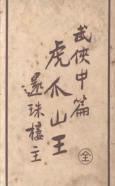 武俠中篇
虎爪山王
還珠樓主
全